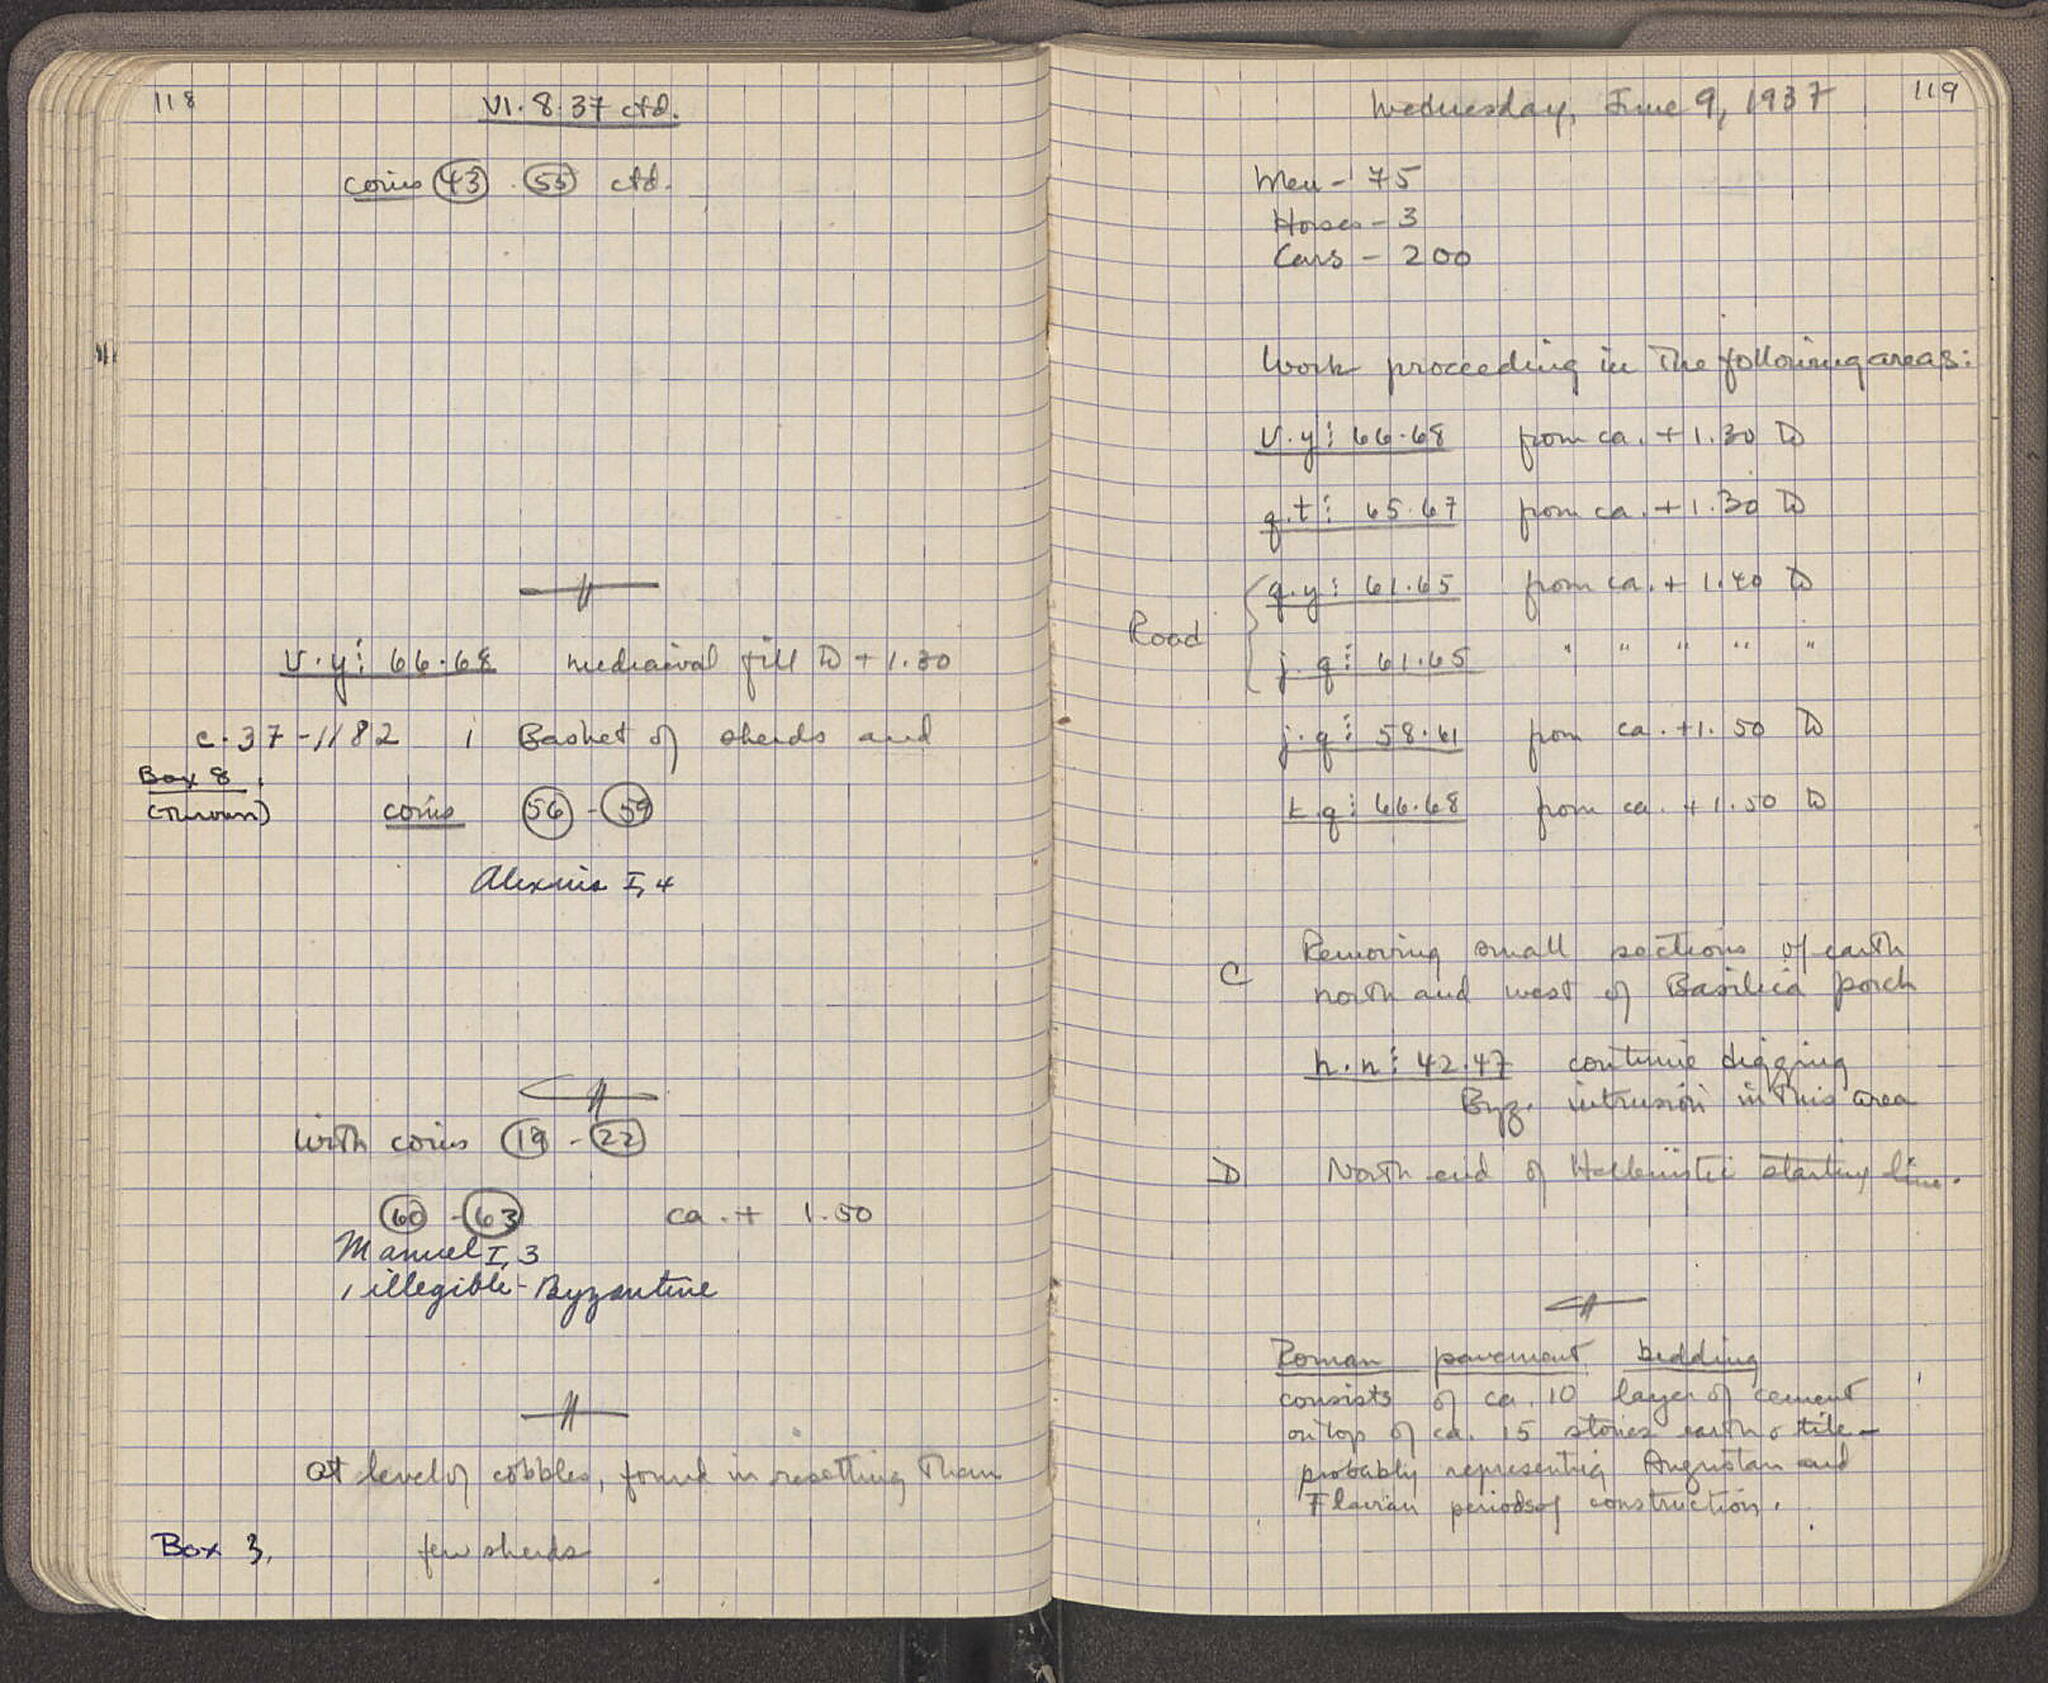 118
VI. 8. 37 ctd.
coins 43 . 55 ctd.
v.y⋮ 66.68 mediaeval fill to + 1.30
C. 37 - 1182 1 Basket of sherds and
Box 8
(Thrown)
coins 56 - 59
Alexius I, 4
With coins 19 - 22
60 - 63 ca. + 1.50
Manuel I, 3
1 illegible - Byzantine
At level of cobbles, found in resetting them
Box 3, few sherds
119
Wednesday, June 9, 1937
Men - 75
Horses - 3
Cars - 200
Work proceeding in the following areas:
v.y⋮ 66.68 from ca. + 1.30 to
q.t⋮ 65.67 from ca. + 1.30 to
q.y⋮ 61.65 from ca. + 1.40 to
Road
j.q⋮ 61.65 " " " " "
j.q⋮ 58.61 from ca. +1.50 to
k.q⋮ 66.68 from ca. + 1.50 to
C Removing small sections of earth
north and west of Basilica porch
h.n⋮ 42.47 continue digging
Byz. intrusion in this area
D North end of Hellenistic starting line.
Roman pavement bedding
consists of ca. 10 layer of cement
on top of ca. 15 stones earth & tile -
probably representing Augustan and
Flavian periods of construction.